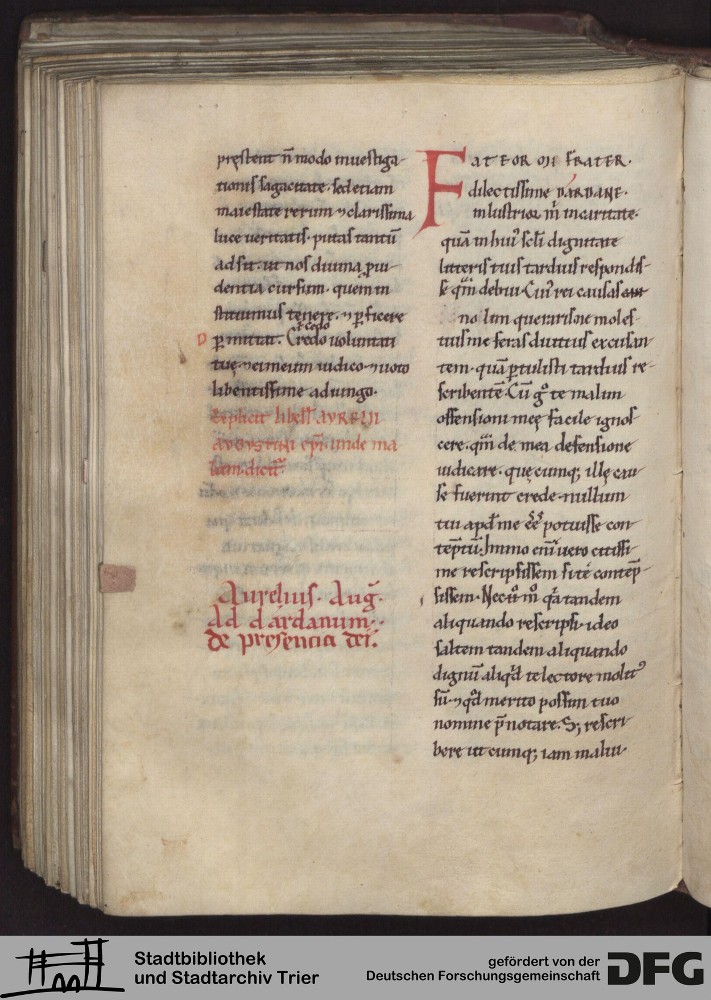 pręstent n̄ modo inuestiga-
tionis sagacitate. sed etiam
maiestate rerum ⁊ clarissima
luce ueritatis. putas tantū
adsit. ut nos diuina ꝓui-
dentia cursum. quem in
stituimus tenere. ⁊ ꝑficere
ꝑmittat. Credo uoluntati
tuę. ⁊ ei meum iudicio. ⁊ uoto
libentissime adiungo.
Explicit libell' AVRELII
AVGVSTINI ep̄i. unde ma
lum. dicit̄.
Aurelius. Auḡ.
Ad dardanum.
de presencia dei.
FATEOR ON FRATER.
dilectissime DARDANE.
inlustrior m̄ in caritate.
quā in hui' sc̄li dignitate
litteris tuis tardius respondis-
se qm̄ debui. Cui' rei causas
nolim querari ne moles-
tius me feras diutius excusan-
tem. quā ꝑtulisti tardius re-
scribentē. Cū g° te malim
offensioni meę facile ignos
cere. qm̄ de mea defensione
iudicare. quęcumq; illę cau-
se fuerint crede nullum
tui apd' me ēē potuisse con-
tēptū. Immo eni uero citissi-
me rescripsissem si te contēp-
sissem. Nec qa tandem
aliquando rescripsi. ideo
saltem tandem aliquando
dignū aliqd te lectore molit'
sū. ⁊ qd merito possim tuo
nomine p̄notare. S; rescri-
bere utcumq; iam malui.
Stadtbibliothek
und Stadtarchiv Trier
gefördert von der
Deutschen Forschungsgemeinschaft
DFG